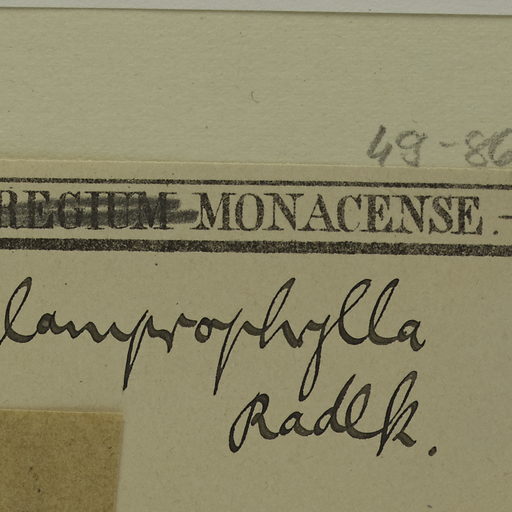 49-86
REGIUM MONACENSE.
lamprophylla
Radlk.